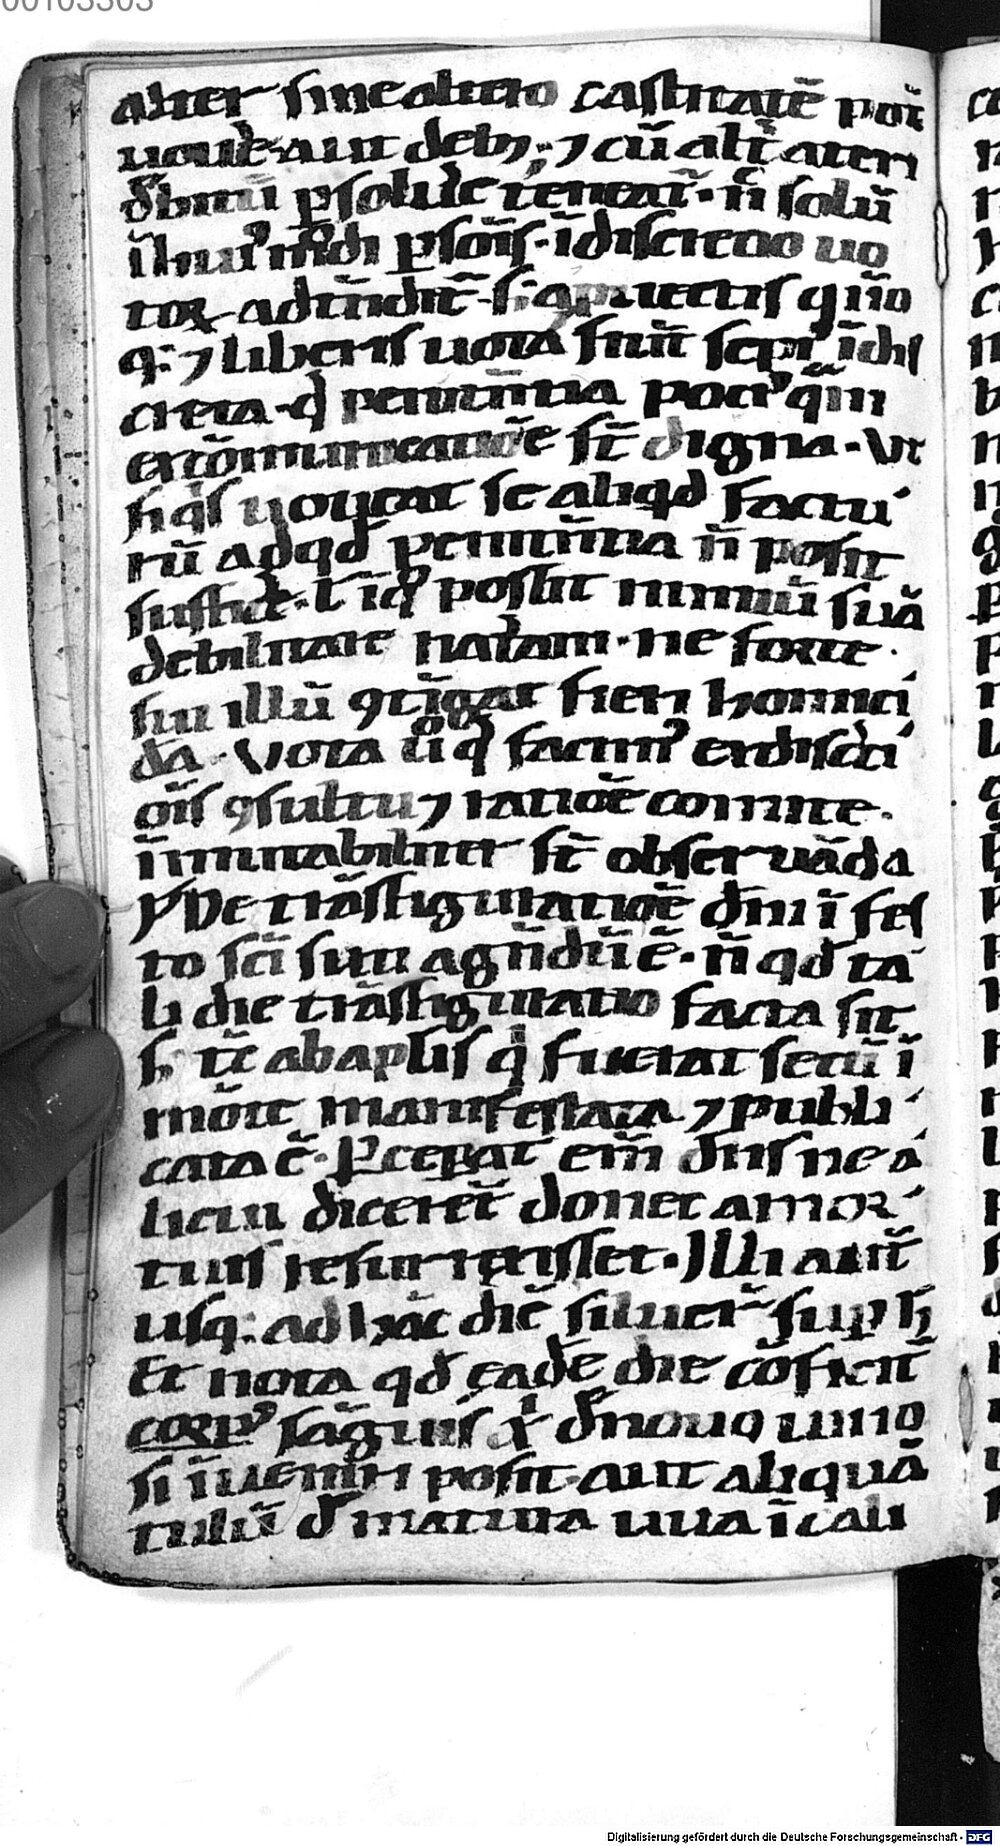 00103303
alter sine altero castitatē pot̄
uoue͛ aut deb&; ⁊ cū alt̄ alteri
d̓bitū ꝑsolue͛ teneat᷑. n̄ solū
ī hui᷒ mōdi ꝑsoīs. īdiscretio uo
toꝝ adtēdit᷑. s;
qꝫ ⁊ liberis uota fiūt sepi᷒ īdis
creta. q̄ penitētia poci᷒ q̄m
excōmunicatiōe st̄ digna. Vt
si qͥs uoueat se aliqd̓ factu
rū ad qd̓ penitētia n̄ possit
suffice͛. ł id q᷒ possit nimiū suā
debilitare naturam. ne forte
sui illū ꝯtīgat fieri homici
da. Vota u͛o q̄ facim᷒ ex discʳti
oīs ꝯsultu ⁊ ratiōe comite.
īmutabiliter st̄ obseruāda
De trāsfiguratiōe dn̄i ī fes
to sc̄i sixti agn̄dū ē. n̄ qd̓ ta
li die trāsfiguratio facta sit
s; tc̄ ab apl̄is qͥ fuerāt secū ī
mōte manifestata ⁊ publi
cata ē. P̄ceꝑat em̄ dn̄s ne a
licui dicerēt donec a mor
tuis resurrexisset. Illi aūt
usqꝫ ad hāc diē siluer̄ suꝑ h̄
Et nota qd̓ eadē die cōficit᷑
corp᷒ sāguis x̄ d̓ nouo uino
si īueniri possit. aut aliquā
tulū d̓ matura uua ī cali
Digitalisierung gefördert durch die Deutsche Forschungsgemeinschaft - DFG